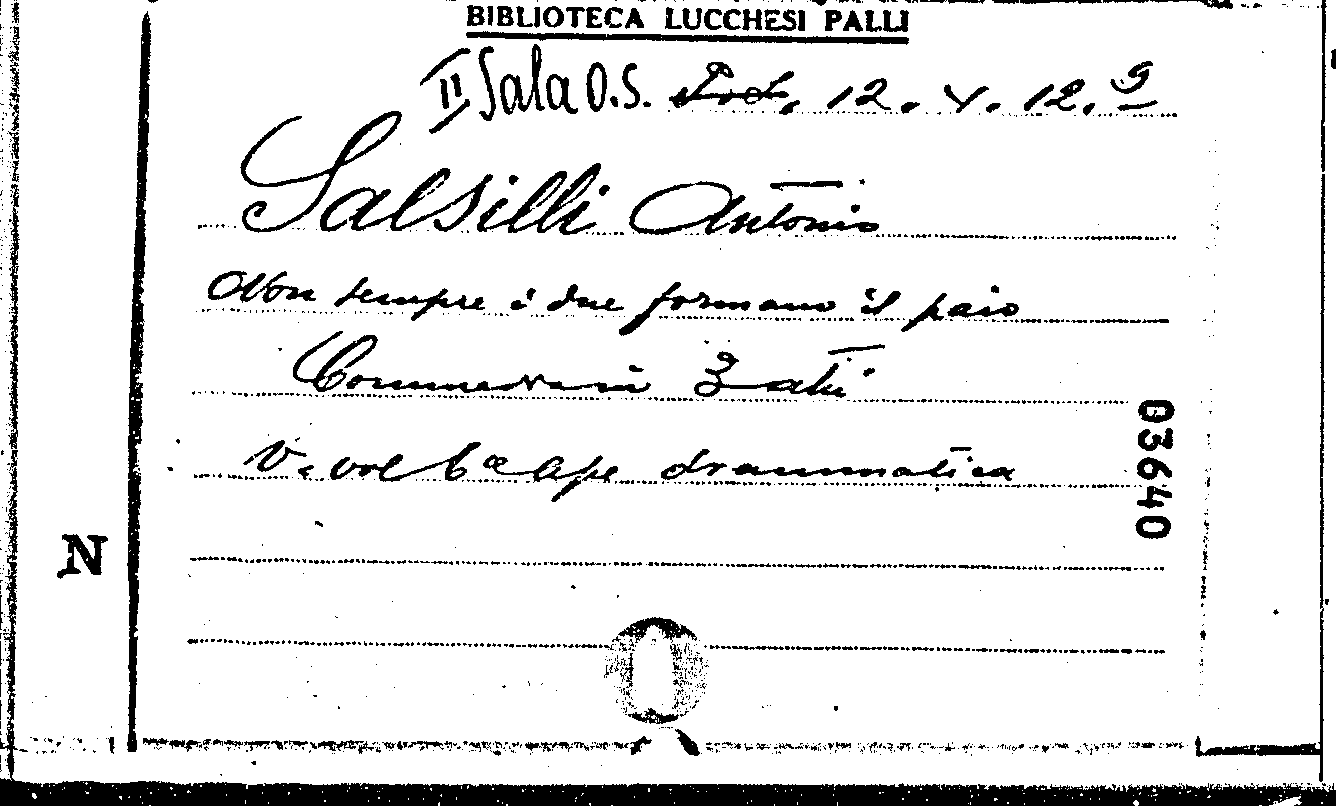 BIBLIOTECA LUCCHESI PALLI
II Sala O.S. 12. V. 12. 9
Salsilli Antonio
Non sempre i due formano il paio
Commedia in 3 atti
V. vol 6º Ape drammatica
03640
N